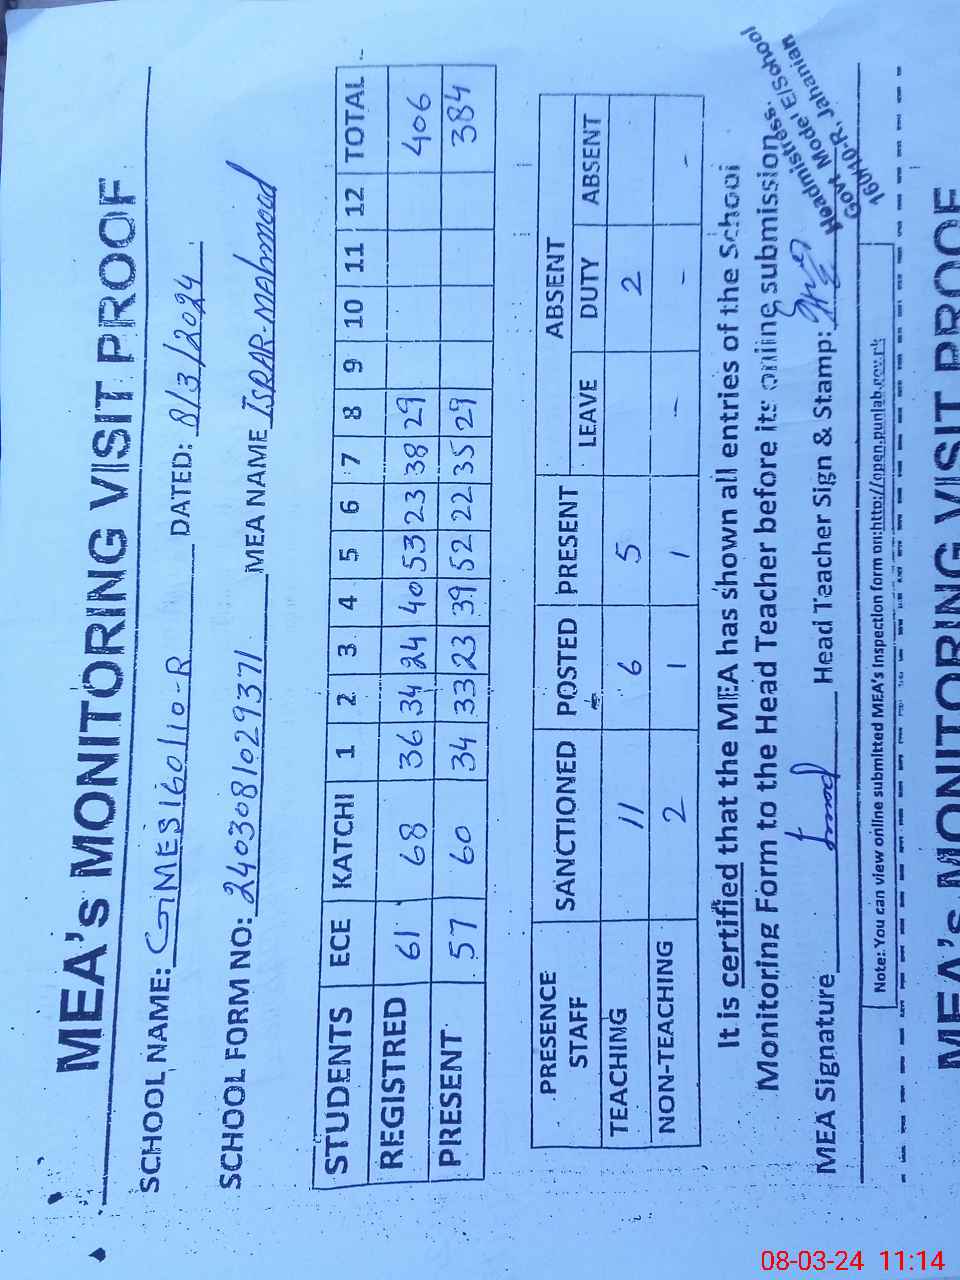 MEA's MONITORING VISIT PROOF
SCHOOL NAME: GMES 160/10-R DATED: 8/3/2024
SCHOOL FORM NO: 2403081029371 MEA NAME ISRAR-MAhmood
STUDENTS ECE KATCHI 1 2 3 4 5 6 7 8 9 10 11 12 TOTAL
REGISTRED 61 68 36 34 24 40 53 23 38 29 406
PRESENT 57 60 34 33 23 39 52 22 35 29 384
PRESENCE STAFF SANCTIONED POSTED PRESENT ABSENT
LEAVE DUTY ABSENT
TEACHING 11 6 5 2
NON-TEACHING 2 1 1 - - -
It is certified that the MEA has shown all entries of the School
Monitoring Form to the Head Teacher before its online submission.
MEA Signature Head Teacher Sign & Stamp:
Headmistress.
Govt. Model E/School
160/10-R, Jahanian
Note: You can view online submitted MEA's Inspection form on:http://open.punjab.gov.pk
MEA's MONITORING VISIT PROOF
08-03-24 11:14